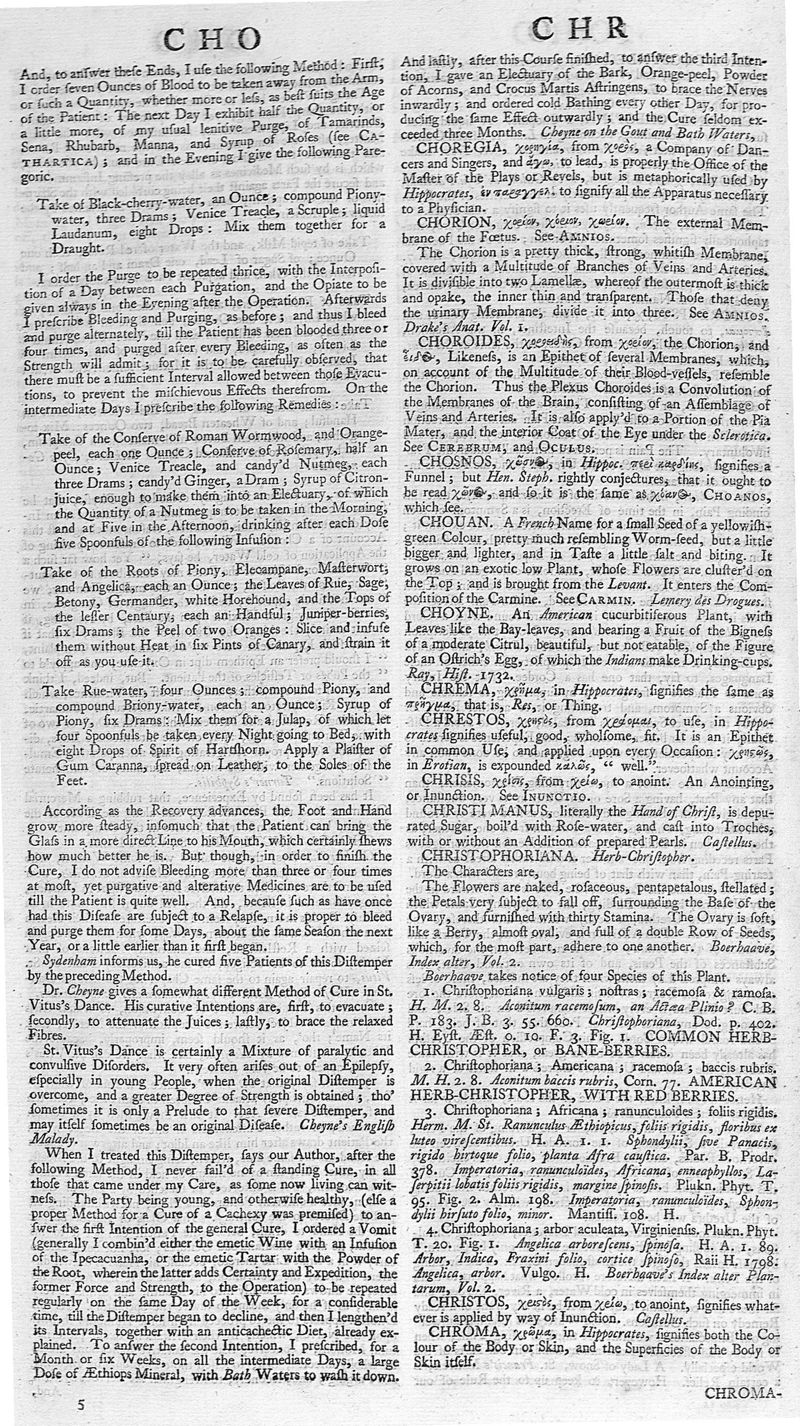 CHO
And, to anſwer theſe Ends, I uſe the following Method: Firſt,
I order ſeven Ounces of Blood to be taken away from the Arm,
or ſuch a Quantity, whether more or leſs, as beſt ſuits the Age
of the Patient: The next Day I exhibit half the Quantity, or
a little more, of my uſual lenitive Purge, of Tamarinds,
Sena, Rhubarb, Manna, and Syrup of Roſes (ſee CA-
THARTICA); and in the Evening I give the following Pare-
goric.
Take of Black-cherry-water, an Ounce; compound Piony-
water, three Drams; Venice Treacle, a Scruple; liquid
Laudanum, eight Drops: Mix them together for a
Draught.
I order the Purge to be repeated thrice, with the Interpoſi-
tion of a Day between each Purgation, and the Opiate to be
given always in the Evening after the Operation. Afterwards
I preſcribe Bleeding and Purging, as before; and thus I bleed
and purge alternately, till the Patient has been blooded three or
four times, and purged after every Bleeding, as often as the
Strength will admit; for it is to be carefully obſerved, that
there muſt be a ſufficient Interval allowed between thoſe Evacu-
tions, to prevent the miſchievous Effects therefrom. On the
intermediate Days I preſcribe the following Remedies:
Take of the Conſerve of Roman Wormwood, and Orange-
peel, each one Ounce; Conſerve of Roſemary, half an
Ounce; Venice Treacle, and candy'd Nutmeg, each
three Drams; candy'd Ginger, a Dram; Syrup of Citron-
juice, enough to make them into an Electuary, of which
the Quantity of a Nutmeg is to be taken in the Morning,
and at Five in the Afternoon, drinking after each Doſe
five Spoonfuls of the following Infuſion:
Take of the Roots of Piony, Elecampane, Maſterwort,
and Angelica, each an Ounce; the Leaves of Rue, Sage,
Betony, Germander, white Horehound, and the Tops of
the leſſer Centaury, each an Handful; Juniper-berries,
ſix Drams; the Peel of two Oranges: Slice and infuſe
them without Heat in ſix Pints of Canary, and ſtrain it
off as you uſe it.
Take Rue-water, four Ounces; compound Piony, and
compound Briony-water, each an Ounce; Syrup of
Piony, ſix Drams: Mix them for a Julap, of which let
four Spoonfuls be taken every Night going to Bed, with
eight Drops of Spirit of Hartſhorn. Apply a Plaiſter of
Gum Caranna, ſpread on Leather, to the Soles of the
Feet.
According as the Recovery advances, the Foot and Hand
grow more ſteady, inſomuch that the Patient can bring the
Glaſs in a more direct Line to his Mouth, which certainly ſhews
how much better he is. But though, in order to finiſh the
Cure, I do not adviſe Bleeding more than three or four times
at moſt, yet purgative and alterative Medicines are to be uſed
till the Patient is quite well. And, becauſe ſuch as have once
had this Diſeaſe are ſubject to a Relapſe, it is proper to bleed
and purge them for ſome Days, about the ſame Seaſon the next
Year, or a little earlier than it firſt began.
Sydenham informs us, he cured five Patients of this Diſtemper
by the preceding Method.
Dr. Cheyne gives a ſomewhat different Method of Cure in St.
Vitus's Dance. His curative Intentions are, firſt, to evacuate;
ſecondly, to attenuate the Juices; laſtly, to brace the relaxed
Fibres.
St. Vitus's Dance is certainly a Mixture of paralytic and
convulſive Diſorders. It very often ariſes out of an Epilepſy,
eſpecially in young People, when the original Diſtemper is
overcome, and a greater Degree of Strength is obtained; tho'
ſometimes it is only a Prelude to that ſevere Diſtemper, and
may itſelf ſometimes be an original Diſeaſe. Cheyne's Engliſh
Malady.
When I treated this Diſtemper, ſays our Author, after the
following Method, I never fail'd of a ſtanding Cure, in all
thoſe that came under my Care, as ſome now living can wit-
neſs. The Party being young, and otherwiſe healthy, (elſe a
proper Method for a Cure of a Cachexy was premiſed) to an-
ſwer the firſt Intention of the general Cure, I ordered a Vomit
(generally I combin'd either the emetic Wine with an Infuſion
of the Ipecacuanha, or the emetic Tartar with the Powder of
the Root, wherein the latter adds Certainty and Expedition, the
former Force and Strength, to the Operation) to be repeated
regularly on the ſame Day of the Week, for a conſiderable
time, till the Diſtemper began to decline, and then I lengthen'd
its Intervals, together with an anticachectic Diet, already ex-
plained. To anſwer the ſecond Intention, I preſcribed, for a
Month or ſix Weeks, on all the intermediate Days, a large
Doſe of Æthiops Mineral, with Bath Waters to waſh it down.
5
CHR
And laſtly, after this Courſe finiſhed, to anſwer the third Inten-
tion, I gave an Electuary of the Bark, Orange-peel, Powder
of Acorns, and Crocus Martis Aſtringens, to brace the Nerves
inwardly; and ordered cold Bathing every other Day, for pro-
ducing the ſame Effect outwardly; and the Cure ſeldom ex-
ceeded three Months. Cheyne on the Gout and Bath Waters,
CHOREGIA, χορηγία, from χορὸς, a Company of Dan-
cers and Singers, and ἄγω, to lead, is properly the Office of the
Maſter of the Plays or Revels, but is metaphorically uſed by
Hippocrates, ἐν παραγγελ. to ſignify all the Apparatus neceſſary
to a Phyſician.
CHORION, χορίον, χόριον, χωρίον. The external Mem-
brane of the Fœtus. See AMNIOS.
The Chorion is a pretty thick, ſtrong, whitiſh Membrane,
covered with a Multitude of Branches of Veins and Arteries.
It is diviſible into two Lamellæ, whereof the outermoſt is thick
and opake, the inner thin and tranſparent. Thoſe that deny
the urinary Membrane, divide it into three. See AMNIOS.
Drake's Anat. Vol. 1.
CHOROIDES, χοροειδὴς, from χορίον, the Chorion, and
εἶδος, Likeneſs, is an Epithet of ſeveral Membranes, which,
on account of the Multitude of their Blood-veſſels, reſemble
the Chorion. Thus the Plexus Choroides is a Convolution of
the Membranes of the Brain, conſiſting of an Aſſemblage of
Veins and Arteries. It is alſo apply'd to a Portion of the Pia
Mater, and the interior Coat of the Eye under the Sclerotica.
See CEREBRUM, and OCULUS.
CHOSNOS, χῶσνος, in Hippoc. περὶ καρδίης, ſignifies a
Funnel; but Hen. Steph. rightly conjectures, that it ought to
be read χῶνος, and ſo it is the ſame as χόανος, CHOANOS,
which ſee.
CHOUAN. A French Name for a ſmall Seed of a yellowiſh-
green Colour, pretty much reſembling Worm-ſeed, but a little
bigger and lighter, and in Taſte a little ſalt and biting. It
grows on an exotic low Plant, whoſe Flowers are cluſter'd on
the Top; and is brought from the Levant. It enters the Com-
poſition of the Carmine. See CARMIN. Lemery des Drogues.
CHOYNE. An American cucurbitiferous Plant, with
Leaves like the Bay-leaves, and bearing a Fruit of the Bigneſs
of a moderate Citrul, beautiful, but not eatable, of the Figure
of an Oſtrich's Egg, of which the Indians make Drinking-cups.
Ray, Hiſt. 1732.
CHREMA, χρῆμα, in Hippocrates, ſignifies the ſame as
πρῆγμα, that is, Res, or Thing.
CHRESTOS, χρηστὸς, from χράομαι, to uſe, in Hippo-
crates ſignifies uſeful, good, wholſome, fit. It is an Epithet
in common Uſe, and applied upon every Occaſion: χρηστῶς,
in Erotian, is expounded καλῶς, " well."
CHRISIS, χρίσις, from χρίω, to anoint. An Anointing,
or Inunction. See INUNCTIO.
CHRISTI MANUS, literally the Hand of Chriſt, is depu-
rated Sugar, boil'd with Roſe-water, and caſt into Troches,
with or without an Addition of prepared Pearls. Caſtellus.
CHRISTOPHORIANA. Herb-Chriſtopher.
The Characters are,
The Flowers are naked, roſaceous, pentapetalous, ſtellated;
the Petals very ſubject to fall off, ſurrounding the Baſe of the
Ovary, and furniſhed with thirty Stamina. The Ovary is ſoft,
like a Berry, almoſt oval, and full of a double Row of Seeds,
which, for the moſt part, adhere to one another. Boerhaave,
Index alter, Vol. 2.
Boerhaave takes notice of four Species of this Plant.
1. Chriſtophoriana vulgaris; noſtras; racemoſa & ramoſa.
H. M. 2. 8. Aconitum racemoſum, an Actæa Plinio? C. B.
P. 183. J. B. 3. 55. 660. Chriſtophoriana, Dod. p. 402.
H. Eyſt. Æſt. 0. 10. F. 3. Fig. 1. COMMON HERB-
CHRISTOPHER, or BANE-BERRIES.
2. Chriſtophoriana; Americana; racemoſa; baccis rubris.
M. H. 2. 8. Aconitum baccis rubris, Corn. 77. AMERICAN
HERB-CHRISTOPHER, WITH RED BERRIES.
3. Chriſtophoriana; Africana; ranunculoides; foliis rigidis.
Herm. M. St. Ranunculus Æthiopicus, foliis rigidis, floribus ex
luteo vireſcentibus. H. A. 1. 1. Sphondylii, ſive Panacis,
rigido hirtoque folio, planta Afra cauſtica. Par. B. Prodr.
378. Imperatoria, ranunculoïdes, Africana, enneaphyllos, La-
ſerpitii lobatis foliis rigidis, margine ſpinoſis. Plukn. Phyt. T.
95. Fig. 2. Alm. 198. Imperatoria, ranunculoïdes, Sphon-
dylii hirſuto folio, minor. Mantiſſ. 108. H.
4. Chriſtophoriana; arbor aculeata, Virginienſis. Plukn. Phyt.
T. 20. Fig. 1. Angelica arboreſcens, ſpinoſa. H. A. 1. 89.
Arbor, Indica, Fraxini folio, cortice ſpinoſo, Raii H. 1798.
Angelica, arbor. Vulgo. H. Boerhaave's Index alter Plan-
tarum, Vol. 2.
CHRISTOS, χριστὸς, from χρίω, to anoint, ſignifies what-
ever is applied by way of Inunction. Caſtellus.
CHROMA, χρῶμα, in Hippocrates, ſignifies both the Co-
lour of the Body or Skin, and the Superficies of the Body or
Skin itſelf.
CHROMA-